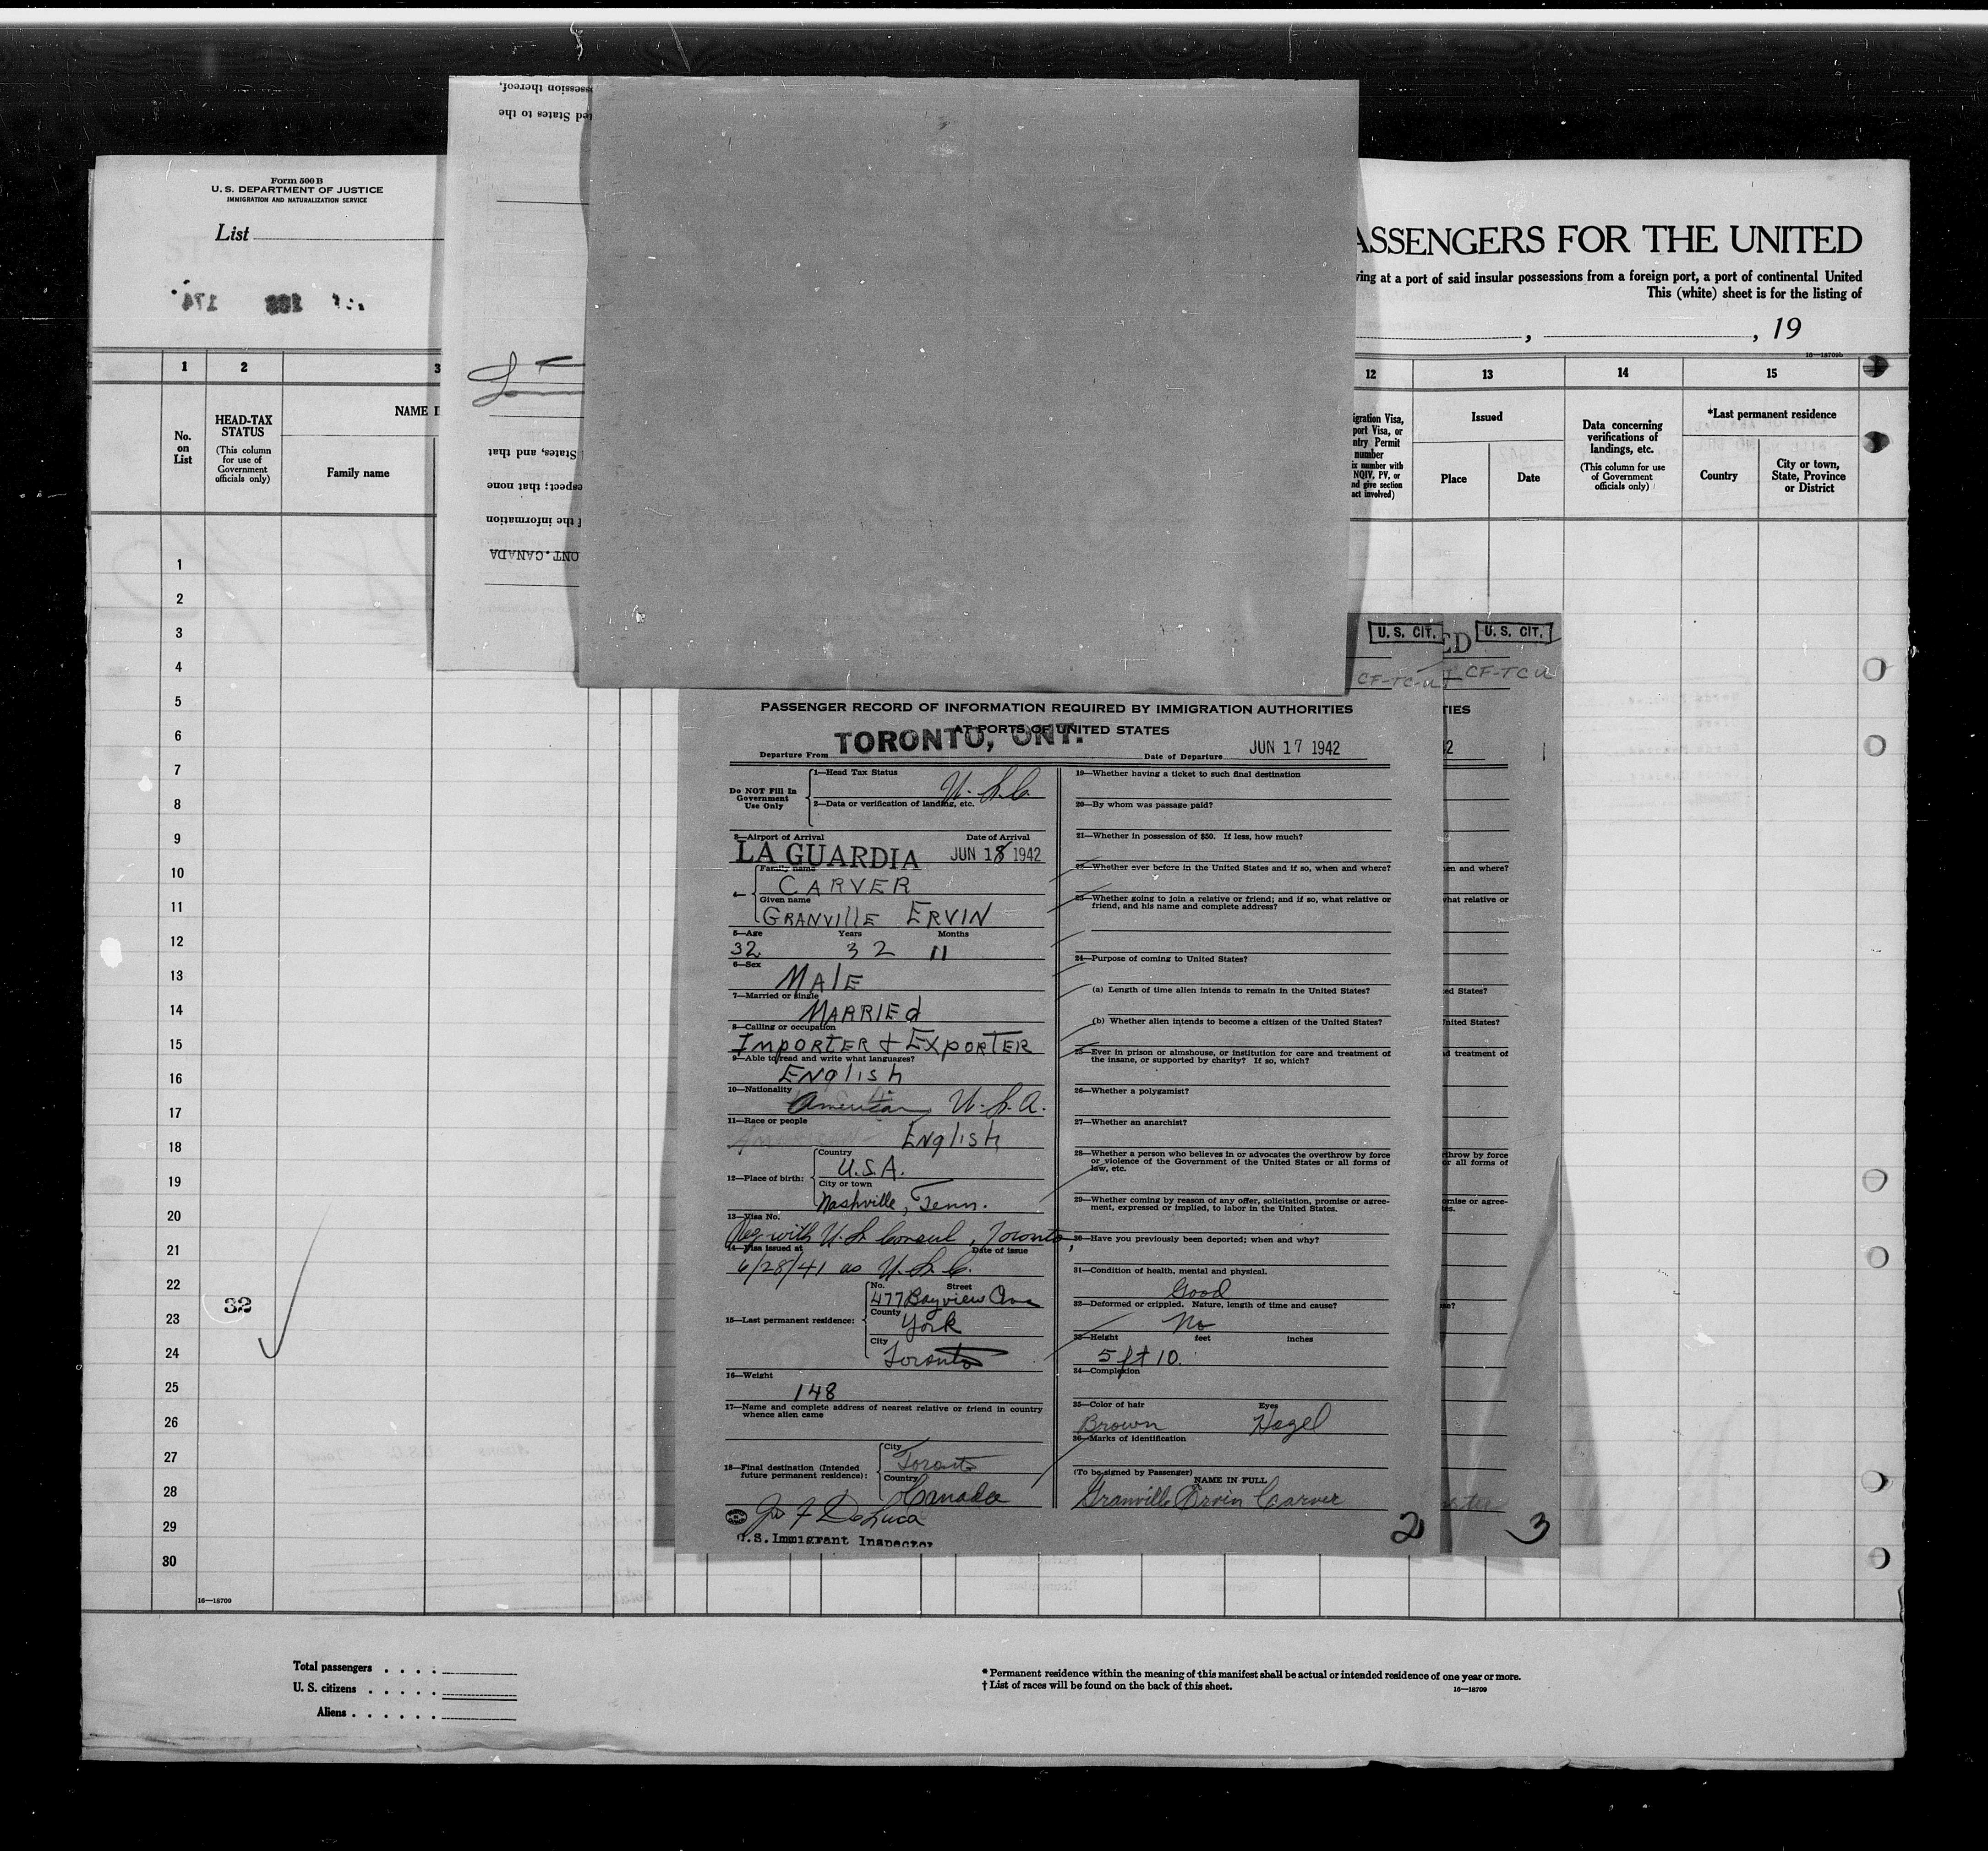 Form 500 B
U. S. DEPARTMENT OF JUSTICE
IMMIGRATION AND NATURALIZATION SERVICE
List
174
ssession thereof.
ted States to the
States, and that
espect; that none
f the information
ONT. CANADA
ASSENGERS FOR THE UNITED
ving at a port of said insular possessions from a foreign port, a port of continental United
This (white) sheet is for the listing of
, , 19
16—18709b
1 2 3 12 13 14 15
No. on List
HEAD-TAX STATUS
(This column for use of Government officials only)
NAME I
Family name
igration Visa,
port Visa, or
ntry Permit
number
ix number with
NQIV, PV, or
nd give section
act involved)
Issued
Place
Date
Data concerning verifications of landings, etc.
(This column for use of Government officials only)
*Last permanent residence
Country
City or town, State, Province or District
1
2
3
4
5
6
7
8
9
10
11
12
13
14
15
16
17
18
19
20
21
22
23
24
25
26
27
28
29
30
32
16—18709
U. S. CIT.
CF-TC-U
ED
U. S. CIT.
CF-TC U
PASSENGER RECORD OF INFORMATION REQUIRED BY IMMIGRATION AUTHORITIES
AT PORTS OF UNITED STATES
Departure From TORONTO, ONT. Date of Departure JUN 17 1942
Do NOT Fill In Government Use Only
1—Head Tax Status U.S.C.
2—Data or verification of landing, etc.
3—Airport of Arrival Date of Arrival
LA GUARDIA JUN 18 1942
4— Family name
CARVER
Given name
GRANVILLE ERVIN
5—Age Years Months
32 32 11
6—Sex
MALE
7—Married or single
MARRIEd
8—Calling or occupation
IMPORTER + EXPORTER
9—Able to read and write what languages?
ENglish
10—Nationality
American U.S.A.
11—Race or people
ENglish
12—Place of birth:
Country
U.S.A.
City or town
Nashville, Tenn.
13—Visa No.
Reg. with U.S. Consul, Toronto,
14—Visa issued at Date of issue
6/28/41 as U.S.C.
15—Last permanent residence:
No. Street
477 Bayview Ave
County
York
City
Toronto
16—Weight
148
17—Name and complete address of nearest relative or friend in country
whence alien came
18—Final destination (Intended future permanent residence):
City
Toronto
Country
Canada
Jos F DeLuca
U.S. Immigrant Inspector
19—Whether having a ticket to such final destination
20—By whom was passage paid?
21—Whether in possession of $50. If less, how much?
22—Whether ever before in the United States and if so, when and where?
23—Whether going to join a relative or friend; and if so, what relative or
friend, and his name and complete address?
24—Purpose of coming to United States?
(a) Length of time alien intends to remain in the United States?
(b) Whether alien intends to become a citizen of the United States?
25—Ever in prison or almshouse, or institution for care and treatment of
the insane, or supported by charity? If so, which?
26—Whether a polygamist?
27—Whether an anarchist?
28—Whether a person who believes in or advocates the overthrow by force
or violence of the Government of the United States or all forms of
law, etc.
29—Whether coming by reason of any offer, solicitation, promise or agree-
ment, expressed or implied, to labor in the United States.
30—Have you previously been deported; when and why?
31—Condition of health, mental and physical.
Good
32—Deformed or crippled. Nature, length of time and cause?
No
33—Height feet inches
5 ft 10.
34—Complexion
35—Color of hair Eyes
Brown Hazel
36—Marks of identification
(To be signed by Passenger)
NAME IN FULL
Granville Ervin Carver
2
TIES
42
en and where?
hat relative or
ed States?
nited States?
d treatment of
throw by force
or all forms of
omise or agree-
es.
se?
3
Total passengers . . . .
U. S. citizens . . . . .
Aliens . . . . . .
* Permanent residence within the meaning of this manifest shall be actual or intended residence of one year or more.
† List of races will be found on the back of this sheet.
16—18709